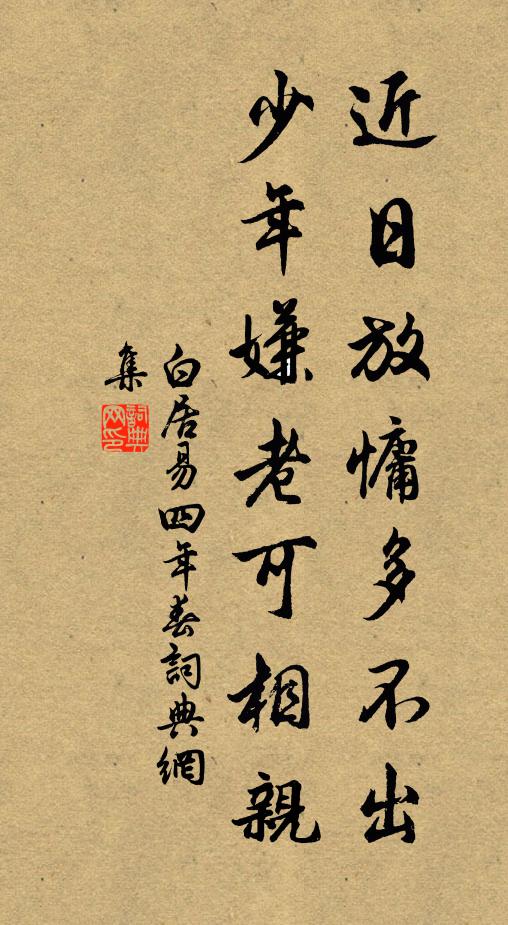 近日放慵多不出
少年嫌老可相親
白居易四年春詞典網
集
詞典網印